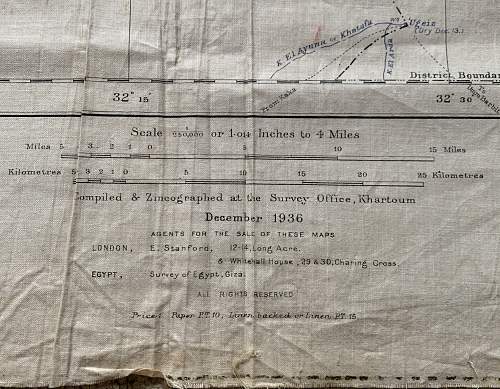 Ugeiz
(Dry Dec. 13.)
K. El Ayuna or Khatafa
District Boundar
From Kaka
To
32° 15'
32° 30'
Scale 1/250,000 or 1·014 Inches to 4 Miles
Miles 5 3 2 1 0 5 10 15 Miles
Kilometres 5 3 2 1 0 5 10 15 20 25 Kilometres
Compiled & Zincographed at the Survey Office, Khartoum
December 1936
AGENTS FOR THE SALE OF THESE MAPS
LONDON, E. Stanford, 12-14, Long Acre.
& Whitehall House, 29 & 30, Charing Cross.
EGYPT, Survey of Egypt, Giza.
ALL RIGHTS RESERVED
Price: Paper P.T. 10, Linen backed or Linen P.T. 15